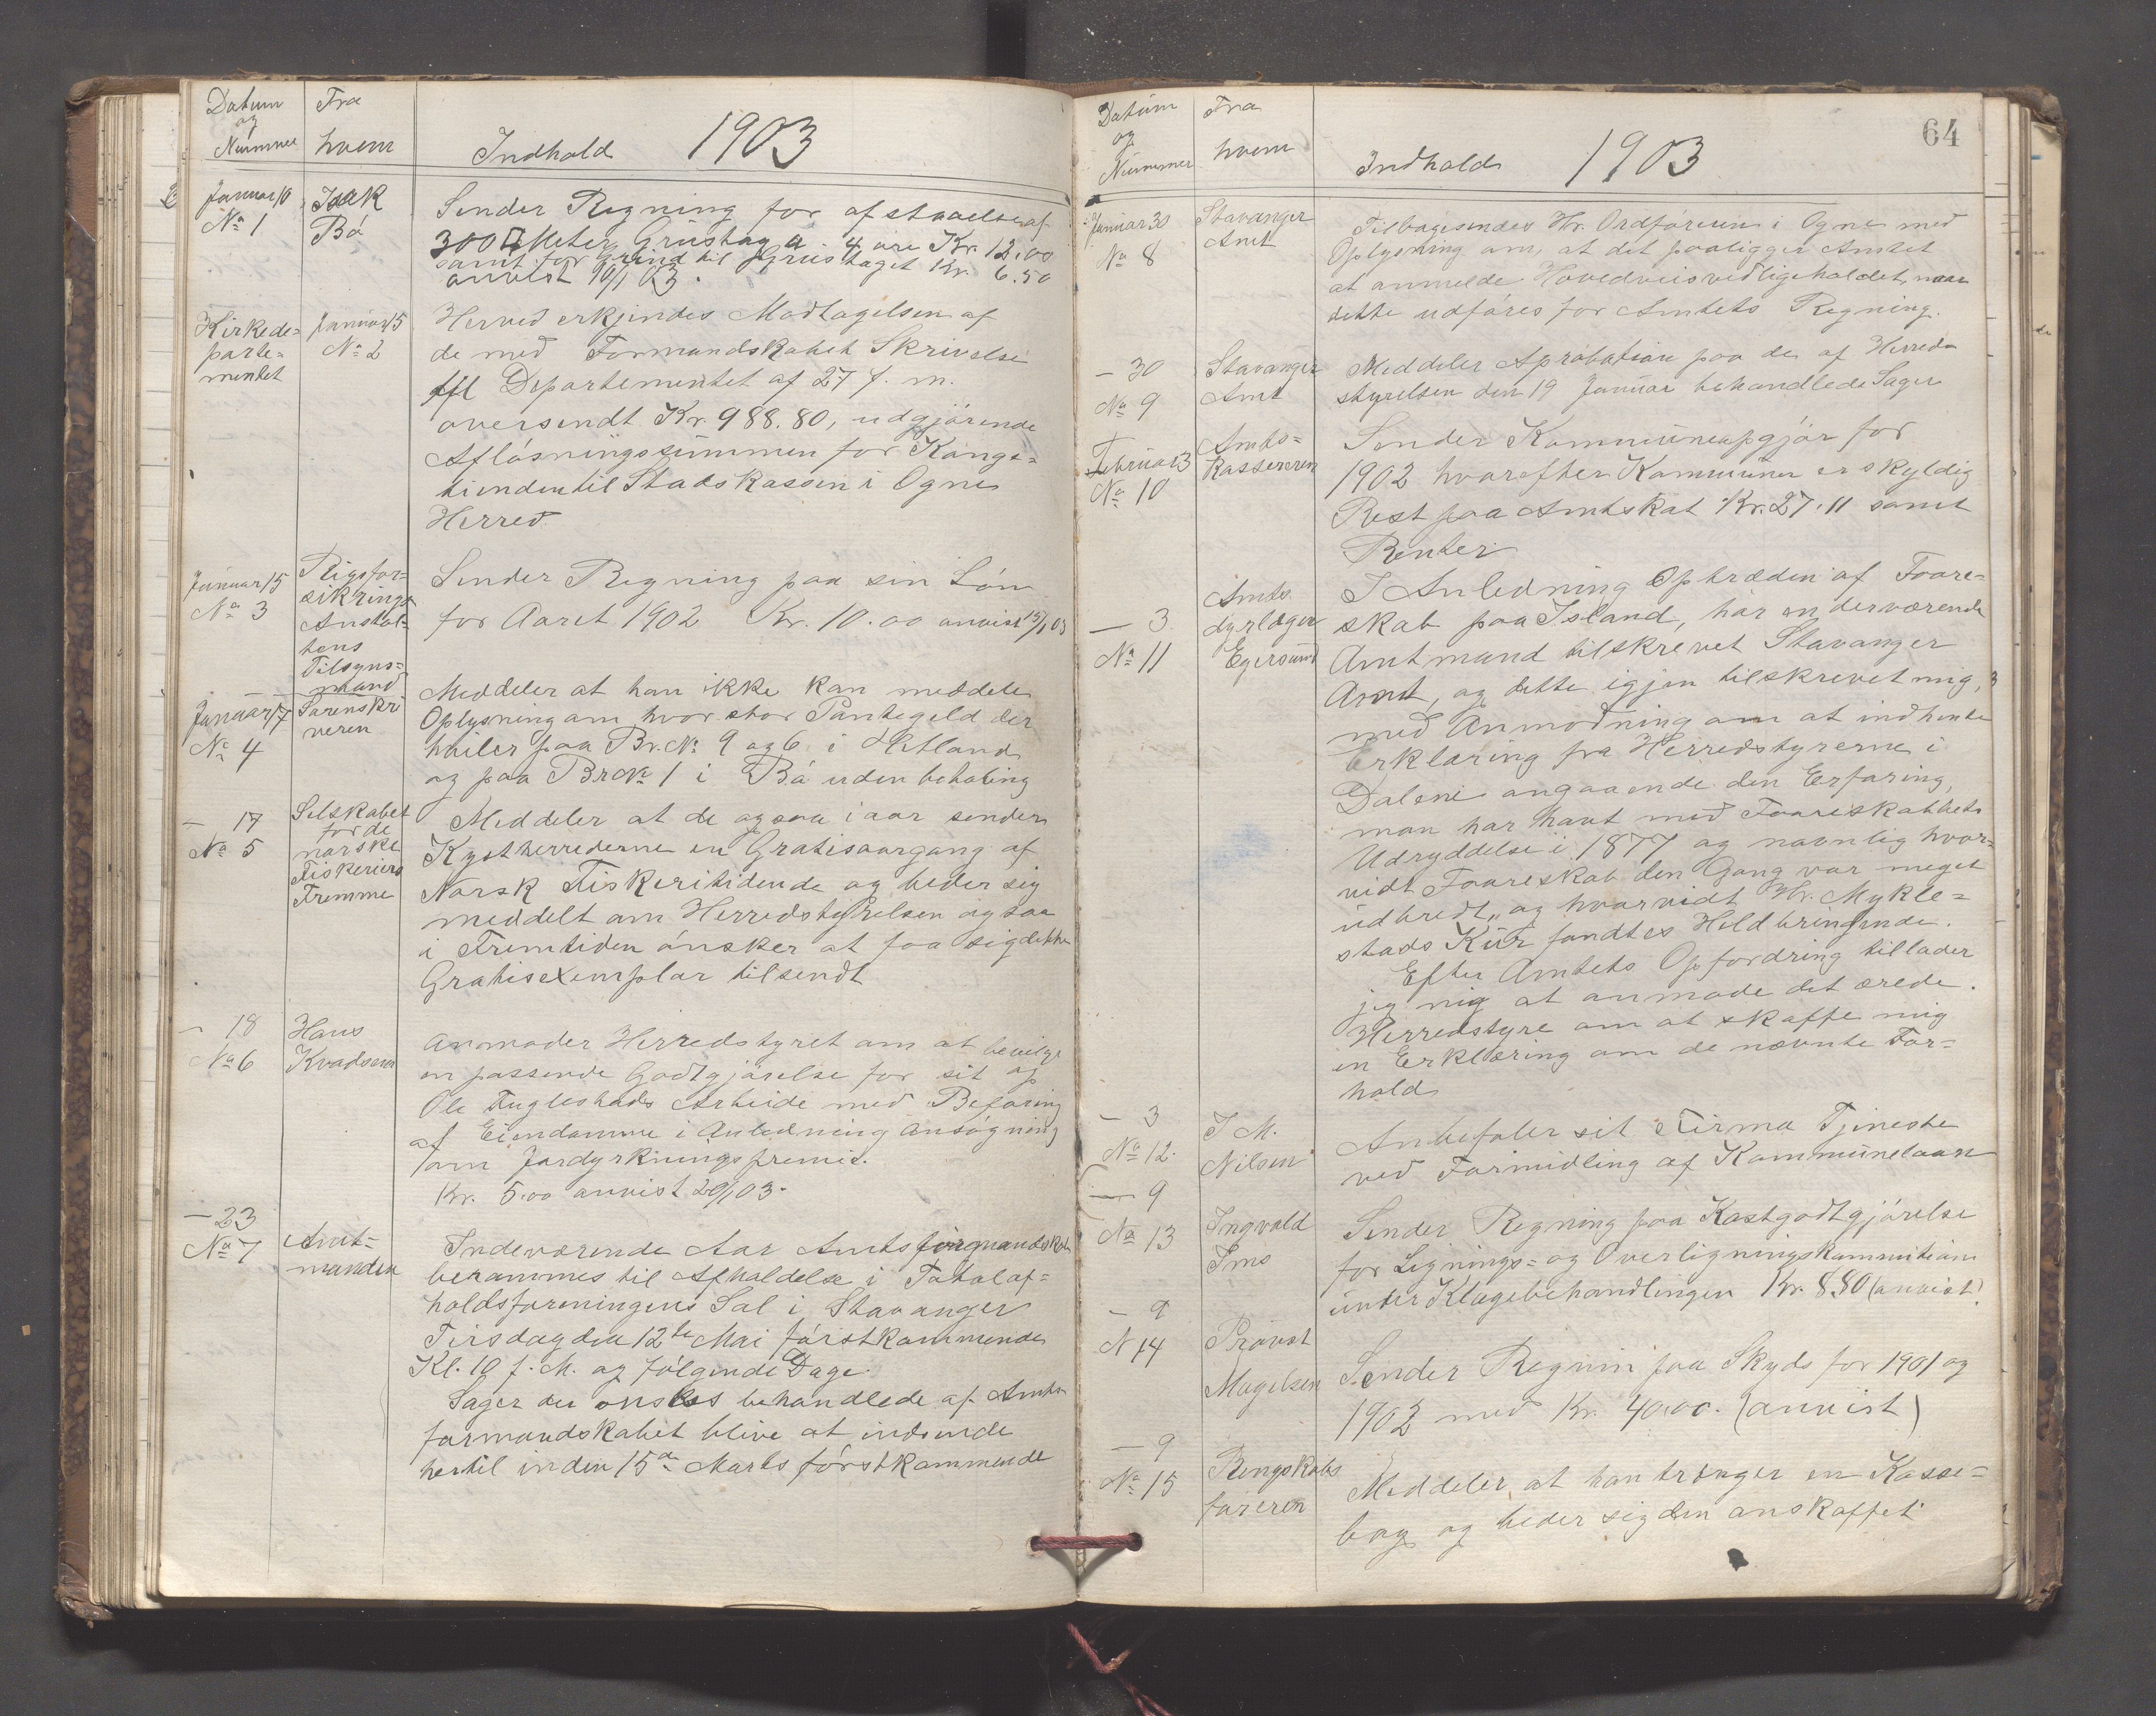 Datum
og
Nummer
Fra
hvem
Indhold 1903
Januar 10
No 1
Isak
Bö
Sender Regning for afstaaelse af
300 □ Meter Grustag a 4 øre Kr. 12.00
samt for Grind til Grustaget Kr. 6.50
anvist 10/1 03.
Kirkede=
parte=
mentet
Januar 15
No 2
Herved erkjendes Modtagelsen af
de med Formandskabet Skrivelse
til Departementet af 27 f. m.
oversendt Kr. 988.80, udgjörende
Aflösningssummen for Konge=
tienden til Stadskassen i Ogne
Herred.
Januar 15
No 3
Rigsfor=
sikrings
Anstal=
tens
Tilsyns=
mand
Sender Regning paa sin Lön
for Aaret 1902 Kr. 10.00 anvist 15/1 03
Januar 17
No 4
Sorenskri
veren
Meddeler at han ikke kan meddele
Oplysning om hvor stor Pantegeld der
hviler paa Br. No 9 og 6 i Hetland
og paa Br No 1 i Bö uden betaling
— 17
No 5
Selskabet
for de
norske
Fiskeriers
Fremme
Meddeler at de ogsaa i aar sender
Kystherrederne en Gratisaargang af
Norsk Fiskeritidende og beder sig
meddelt om Herredstyrelsen ogsaa
i Fremtiden önsker at faa sig dette
Gratisexemplar tilsendt
— 18
No 6
Hans
Kvadsem
Anmoder Herredstyret om at bevilge
en passende Godtgjörelse for sit og
Ole Fuglestads Arbeide med Befaring
af Eiendomme i Anledning Ansögning
om Jordyrkningspremie.
Kr. 5.00 anvist 20/1 03.
— 23
No 7
Amt=
manden
Indeværende Aar Amtsformandskab
berammes til Afholdelse i Totalaf=
holdsforeningens Sal i Stavanger
Tirsdag den 12te Mai förstkommende
Kl. 10 f. M. og fölgende Dage.
Sager der onskes behandlede af Amts
formandskabet blive at indsende
hertil inden 15de Marts förstkommende
64
Datum
og
Nummer
Fra
hvem
Indhold 1903
Januar 30
No 8
Stavanger
Amt
Tilbagesendes Hr. Ordföreren i Ogne med
Oplysning om, at det paaligger Amtet
at anmelde Hovedveisvedligeholdet, naar
dette udföres for Amtets Regning.
— 30
No 9
Stavanger
Amt
Meddeler Aprobation paa de af Herreds
styrelsen den 19 Januar behandlede Sager
Februar 3
No 10
Amts=
kassereren
Sender Kommuneopgjör for
1902 hvorefter Kommunen er skyldig
Rest paa Amtskat Kr. 27.11 samt
Renter.
— 3
No 11
Amts
dyrlæger
Egersund
I Anledning Optræden af Faare=
skab paa Island, har en derværende
Amtmand tilskrevet Stavanger
Amt, og dette igjen tilskrevet mig,
med Anmodning om at indhente
Erklæring fra Herredstyrerne i
Dalene angaaende den Erfaring,
man har havt med Faareskabbets
Udryddelse i 1877 og navnlig hvor=
vidt Faareskab den Gang var meget
udbredt, og hvorvidt Hr. Mykle=
stads Kur fandtes Heldbringende.
Efter Amtets Opfordring tillader
jeg mig at anmode det ærede
Herredstyre om at skaffe mig
en Erklæring om de nævnte For=
hold
— 3
No 12.
I. M.
Nilsen
Anbefaler sit Firma Tjeneste
ved Formidling af Kommunelaan
— 9
No 13
Ingvald
Ims
Sender Regning paa Kostgodtgjörelse
for Lignings= og Overligningskommition
under Klagebehandlingen Kr. 8.80 (anvist)
— 9
N 14
Provst
Magelsen
Sender Regnin paa Skyds for 1901 og
1902 med Kr. 40.00. (anvist)
— 9
No 15
Rengskabs
föreren
Meddeler at han trænger en Kasse=
bog og beder sig den anskaffet